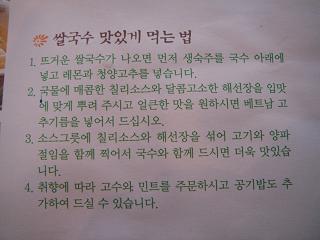 쌀국수 맛있게 먹는 법
1. 뜨거운 쌀국수가 나오면 먼저 생숙주를 국수 아래에
넣고 레몬과 청양고추를 넣습니다.
2. 국물에 매콤한 칠리소스와 달콤고소한 해선장을 입맛
에 맞게 뿌려 주시고 얼큰한 맛을 원하시면 베트남 고
추기름을 넣어서 드십시오.
3. 소스그릇에 칠리소스와 해선장을 섞어 고기와 양파
절임을 함께 찍어서 국수와 함께 드시면 더욱 맛있습
니다.
4. 취향에 따라 고수와 민트를 주문하시고 공기밥도 추
가하여 드실 수 있습니다.